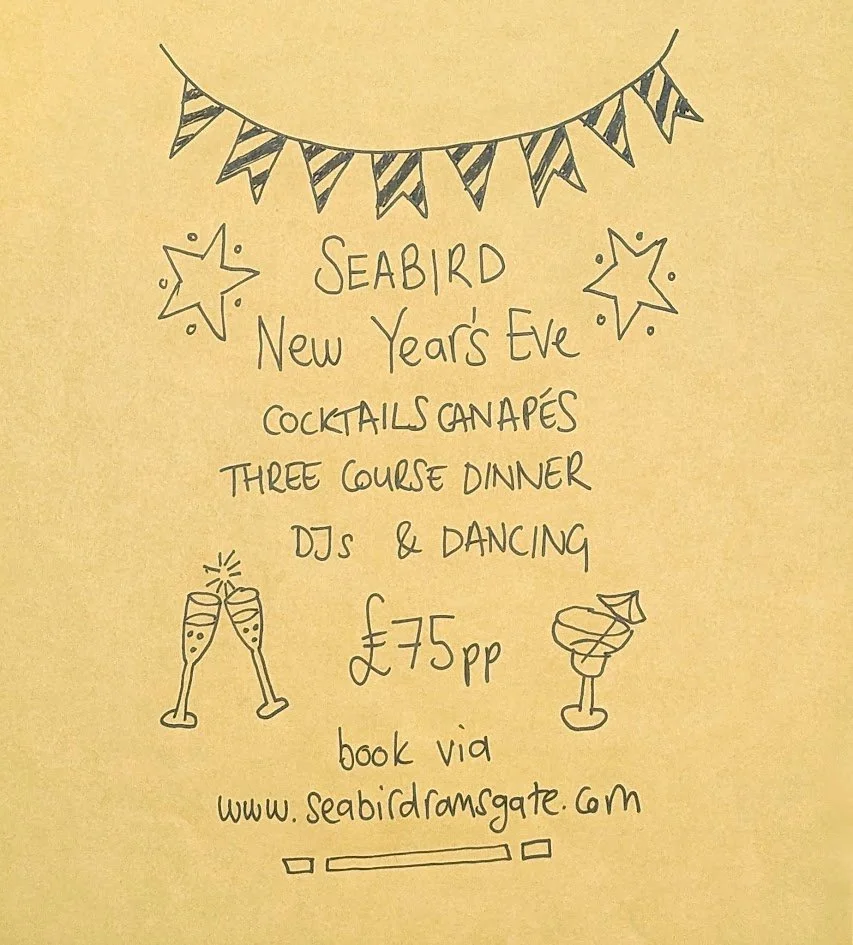 SEABIRD
New Year's Eve
COCKTAILS CANAPÉS
THREE COURSE DINNER
DJs & DANCING
£75pp
book via
www.seabirdramsgate.com